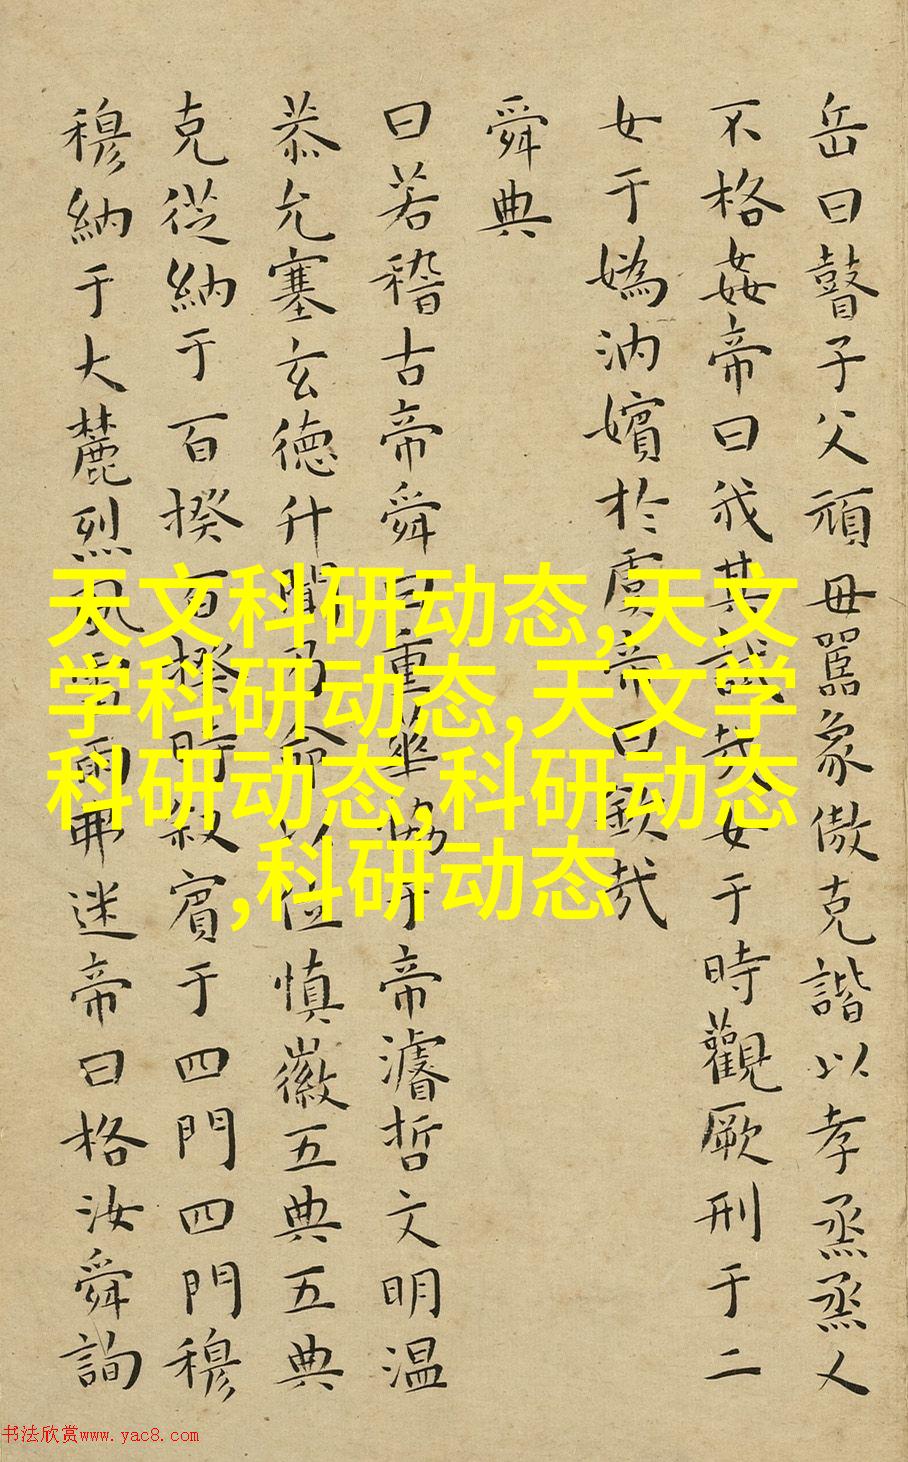 岳曰瞽子父頑母嚚象傲克諧以孝烝烝乂
不格姦帝曰我其試哉女于時觀厥刑于二
女于媯汭嬪於虞帝曰欽哉
舜典
曰若稽古帝舜曰重華協于帝濬哲文明温
恭允塞玄德升聞乃命以位慎徽五典五典
克從納于百揆百揆時敘賓于四門四門穆
穆納于大麓烈風雷雨弗迷帝曰格汝舜詢
天文科研动态,天文
学科研动态,天文学
科研动态,科研动态
,科研动态
书法欣赏www.yac8.com